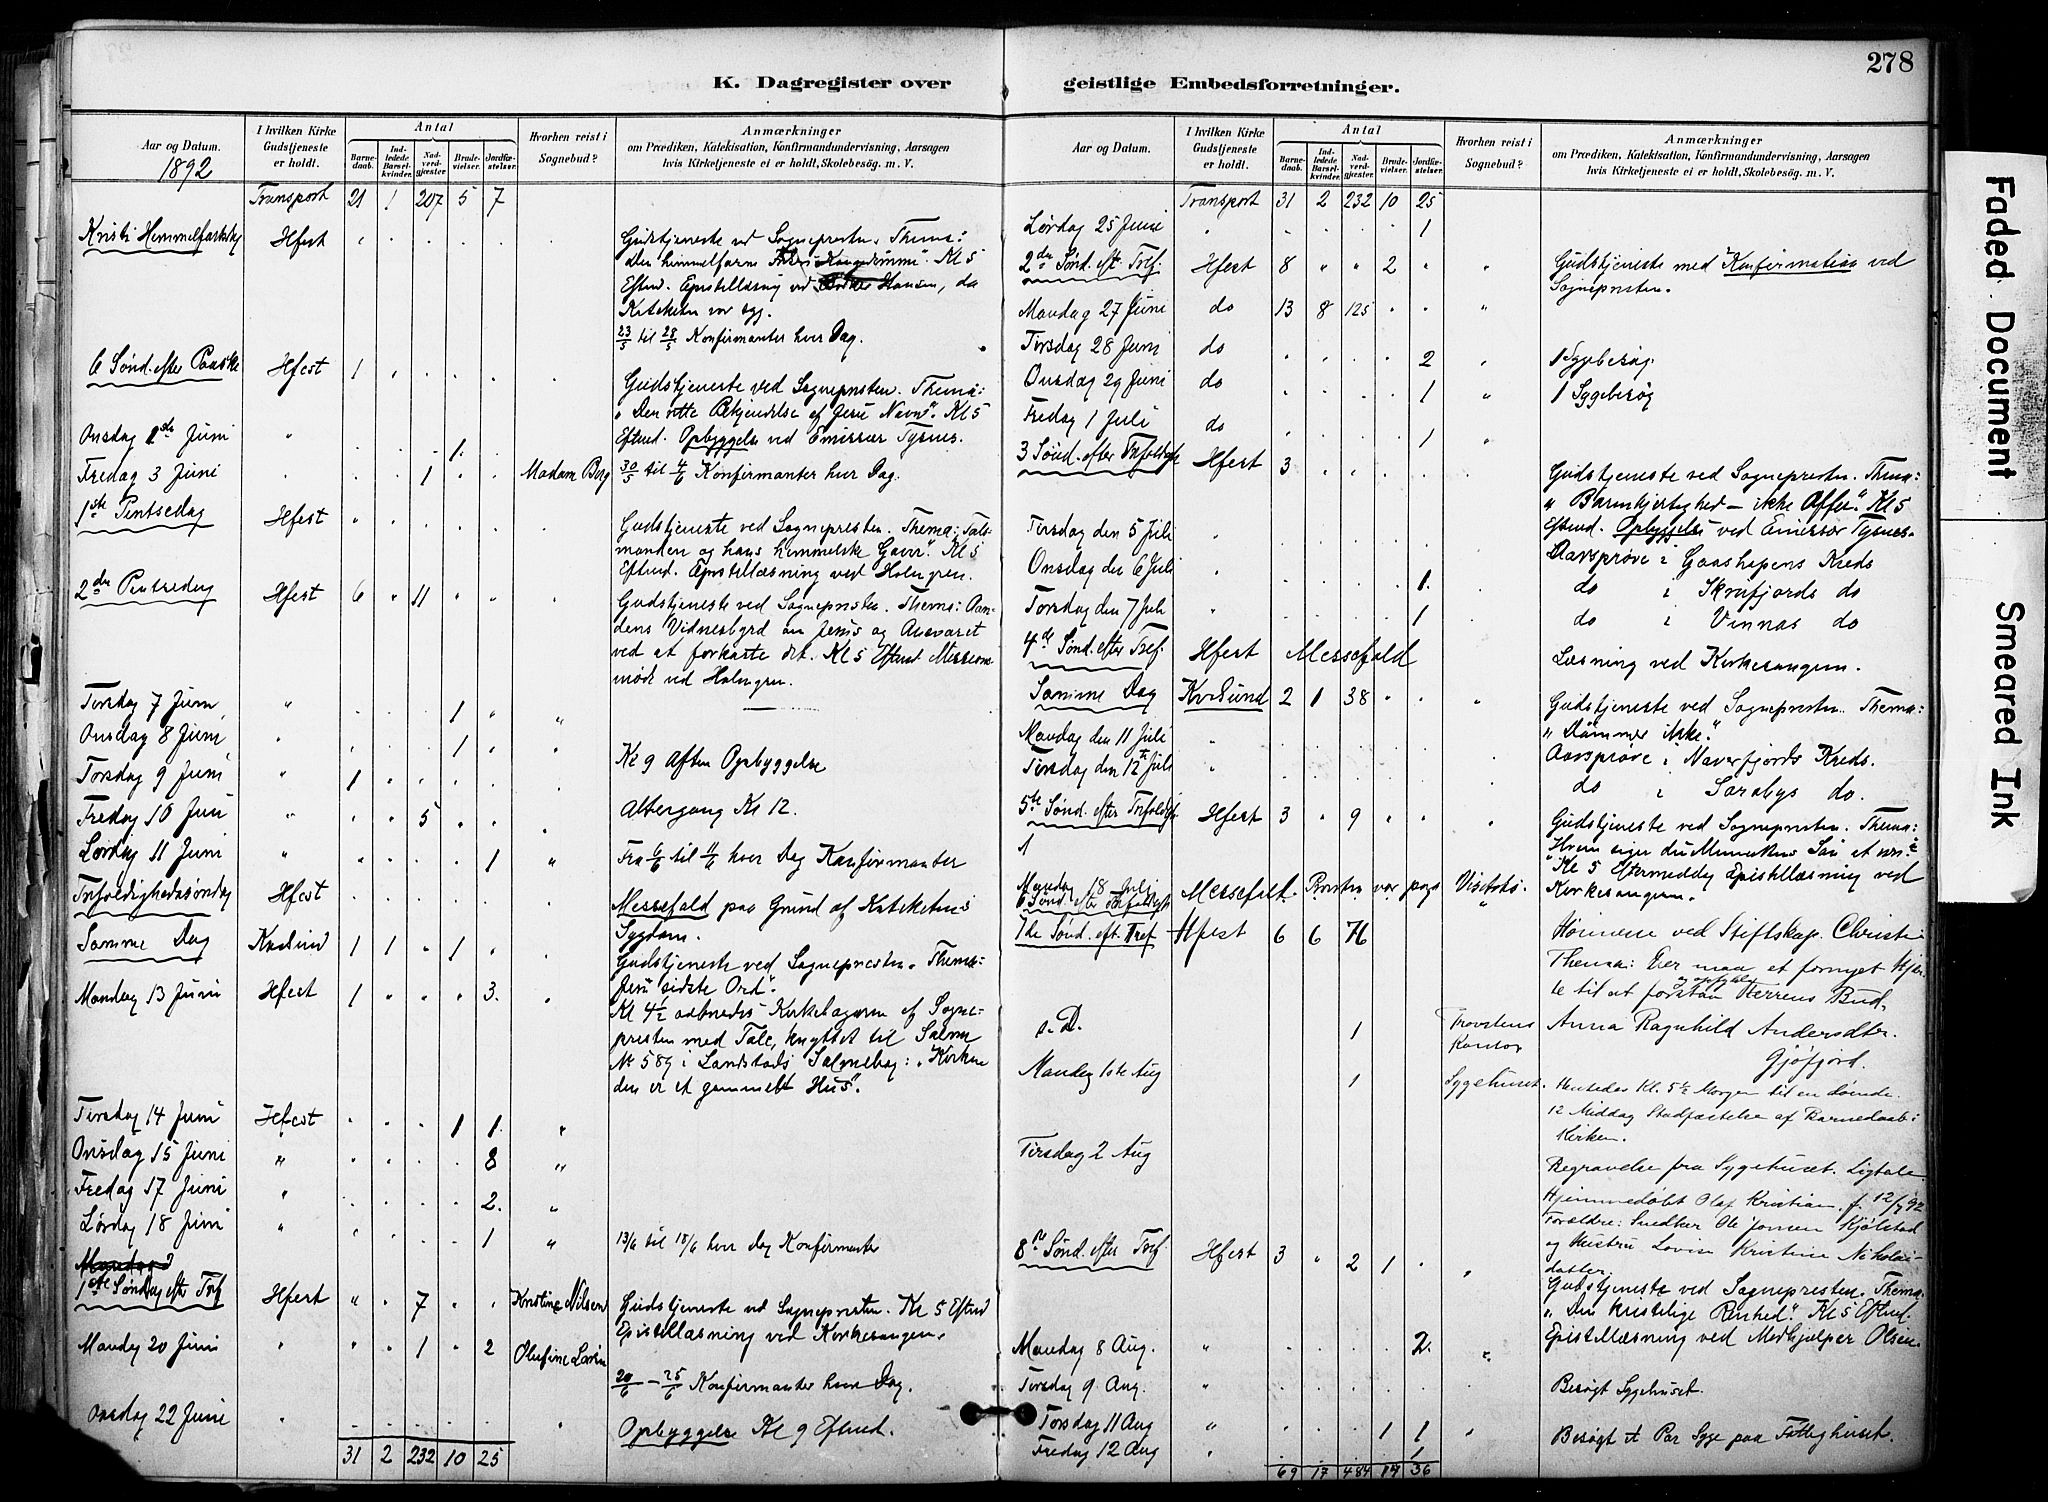 278
K. Dagregister over geistlige Embedsforretninger.
Aar og Datum.
1892
I hvilken Kirke Gudstjeneste er holdt.
Antal
Barnedaab.
Indledede Barselkvinder.
Nadverdgjæster
Brudevielser.
Jordfæstelser.
Hvorhen reist i Sognebud?
Anmærkninger
om Prædiken, Katekisation, Konfirmandundervisning, Aarsagen
hvis Kirketjeneste ei er holdt, Skolebesøg. m. V.
Transport 21 1 207 5 7
Kristi Himmelfartsdag Hfest
Gudstjeneste ved Sognepresten. Thema:
Den himmelfarne Kl 5
Eftmd. Epistellæsning ved Hansen, da
Kateketen var syg.
23/5 til 28/5 Konfirmanter hver Dag.
6 Sønd. efter Paaske Hfest 1
Gudstjeneste ved Sognepresten. Thema:
"Den rette Bekjendelse af Jesu Navn". Kl 5
Eftmd. Opbyggelse ved Emissær Tysnes.
Onsdag 1ste Juni " 1
Fredag 3 Juni 1 Madam Berg 30/5 til 4/6 Konfirmanter hver Dag.
1ste Pintsedag Hfest
Gudstjeneste ved Sognepresten. Thema: Tals-
manden og hans himmelske Gaver". Kl 5
Eftmd. Epistellæsning ved Holmgren.
2den Pintsedag Hfest 6 " 11 " "
Gudstjeneste ved Sognepresten. Thema: Aan-
dens Vidnesbyrd om Jesus og Ansvaret
ved at forkaste det. Kl 5 Eftmd Missions
møde ved Holmgren.
Tirsdag 7 Juni " 1 "
Onsdag 8 Juni " 1 " Kl 9 Aften Opbyggelse
Torsdag 9 Juni " 1
Fredag 10 Juni " 5 Altergang Kl 12.
Lørdag 11 Juni " 1 " Fra 6/6 til 11/6 hver Dag Konfirmanter
Trefoldighedssøndag Hfest
Messefald paa Grund af Kateketens
Sygdom.
Samme Dag Kvalsund 1 1 " 1 "
Gudstjeneste ved Sognepresten. Thema:
Jesu sidste Ord".
Mandag 13 Juni Hfest 1 " " " 3.
Kl 4½ aabnedes Kirkebazaren af Sogne-
presten med Tale, knyttet til Salme
No 589 i Landstads Salmebog: "Kirken
den er et gammelt Hus".
Tirsdag 14 Juni Hfest 1 1. "
Onsdag 15 Juni " 8 "
Fredag 17 Juni " 2. "
Lørdag 18 Juni " 1 " 13/6 til 18/6 hver Dag Konfirmanter
Mandag
1ste Søndag efter Tref Hfest " " 7 " " Kristine Nilsen
Gudstjeneste ved Sognepresten. Kl 5 Eftmd
Epistellæsning ved Kirkesangeren.
Mandag 20 Juni " " " 1 " 2 Olufine Larsen
20/6 – 25/6 Konfirmanter hver Dag.
Onsdag 22 Juni " Opbyggelse Kl 9 Eftmd.
31 2 232 10 25
Aar og Datum.
I hvilken Kirke Gudstjeneste er holdt.
Antal
Barnedaab.
Indledede Barselkvinder.
Nadverdgjæster
Brudevielser.
Jordfæstelser.
Hvorhen reist i Sognebud?
Anmærkninger
om Prædiken, Katekisation, Konfirmandundervisning, Aarsagen
hvis Kirketjeneste ei er holdt, Skolebesøg. m. V.
Transport 31 2 232 10 25
Lørdag 25 Juni " 1
2den Sønd. eft. Tref. Hfest 8 " " 2 "
Gudstjeneste med Konfirmation ved
Sognepresten.
Mandag 27 Juni do 13 8 125 " " "
Tirsdag 28 Juni do 2 " 1 Sygebesøg
Onsdag 29 Juni do 1 " 1 Sygebesøg
Fredag 1 Juli do 1 "
3 Sønd. efter Trefoldigh Hfest 3
Gudstjeneste ved Sognepresten. Thema:
"Barmhjertighed – ikke Offer". Kl 5
Eftmd. Opbyggelse ved Emissær Tysnes.
Tirsdag den 5 Juli " Aarsprøve i Gaashopens Kreds
Onsdag den 6 Juli " 1. do i Skrafjords do
Torsdag den 7 Juli " 1 do i Vinnas do
4de Sønd. efter Tref. Hfest Messefald Læsning ved Kirkesangeren.
Samme Dag Kvalsund 2 1 38 " " "
Gudstjeneste ved Sognepresten. Thema:
"Dømmer ikke".
Mandag den 11 Juli " Aarsprøve i Naverfjords Kreds.
Tirsdag den 12te Juli " do i Saraby's do.
5te Sønd. efter Trefoldigh. Hfest 3 " 9 " " "
Gudstjeneste ved Sognepresten. Thema:
"Hvem siger du Menneskens Søn at være"
Kl 5 Eftermiddag Epistellæsning ved
Kirkesangeren.
Mandag 18 Juli
6 Sønd. efter Trefoldigh Messefald. Provsten var paa Visitats-
7de Sønd. eft. Tref Hfest 6 6 76
ved Stiftskap. Christie
Thema: Eier maa et fornyet Hjer-
te til at forstaa og opfylde Herrens Bud.
s. D. 1 Provstens Kontor Anna Ragnhild Andersdtr.
Gjøfjord.
Mandag 1ste Aug 1 Sygehuset. Hentedes Kl. 5½ Morgen til en døende.
12 Middag Stadfæstelse af Barnedaab i
Kirken.
Tirsdag 2 Aug
Begravelse fra Sygehuset. Ligtale
Hjemmedøbt Olaf Kristian f. 12/7 92
Forældre: Snedker Ole Jonsen Kjølstad
og Hustru Lovise Kristine Nikolai-
datter.
8de Sønd. efter Tref. Hfest 3 " 2 1 "
Gudstjeneste ved Sognepresten. Thema:
"Den kristelige Renhed". Kl 5 Eftmd.
Epistellæsning ved Medhjælper Olsen
Mandag 8 Aug. " 2. "
Tirsdag 9 Aug. " Besøgt Sygehuset.
Torsdag 11 Aug " 1 1 " Besøgt et Par Syge paa Fattighuset.
Fredag 12 Aug " 1
69 17 484 14 36
Faded Document
Smeared Ink